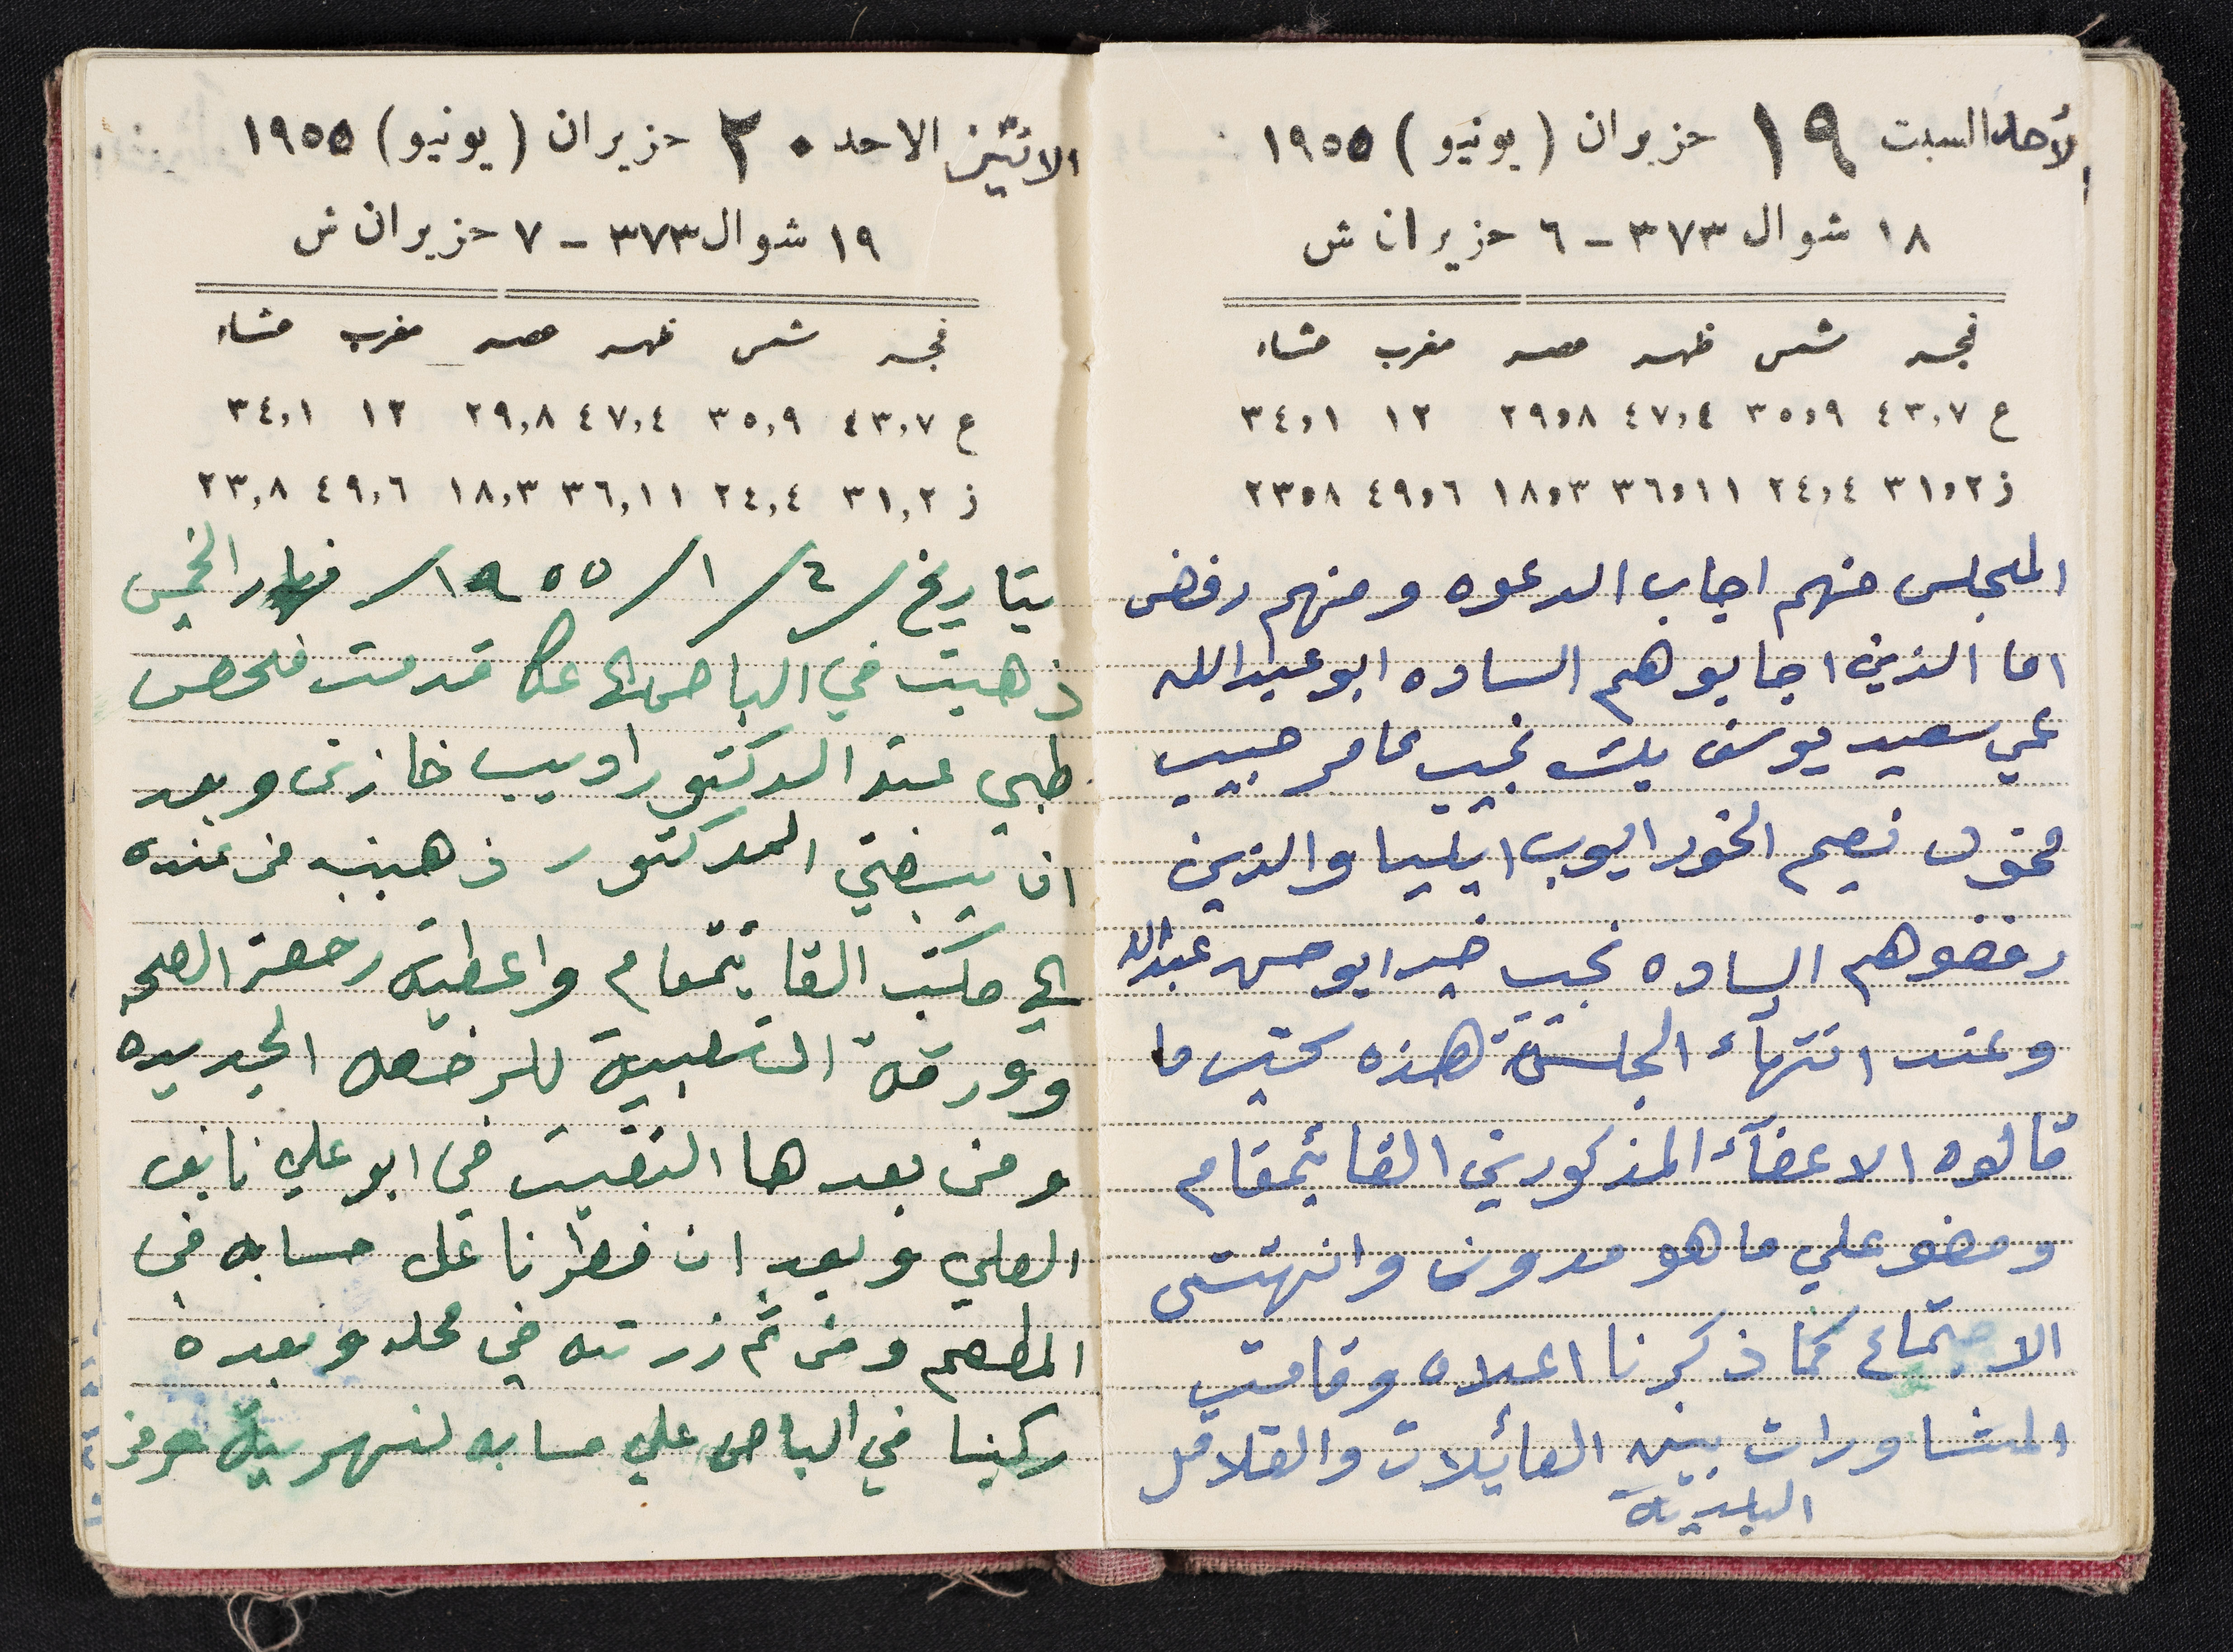 الأحد السبت ١٩ حزيران (يونيو) ١٩٥٥
١٨ شوال ٣٧٣ - ٦ حزيران ش
فجر شمس ظهر عصر مغرب عشاء
ع ٤٣,٧ ٣٥,٩ ٤٧,٤ ٢٩,٨ ١٢ ٣٤,١
ز ٣١,٢ ٢٤,٤ ٣٦,١١ ١٨,٣ ٤٩,٦ ٢٣,٨
المجلس منهم اجاب الدعوه ومنهم رفض
اما الذين اجابوهم الساده ابو عبدالله
علي سعيد يوسف بك نجيب عامر حبيب
مخول نعيم الخور ايوب ايليا والذين
رفضوهم الساده نجيب خير ابو حسن عبدالله
وعند انتهآء الجلسة هذه كتب ما
قالوه الاعضآء المذكورين القائمقام
ومضو علي ما هو مدون وانهتىى
الاجتماع كما ذكرنا اعلاه وقامت
المشاورات بين العائيلات والقلاقل
البلدية
الاثنين الاحد ٢٠ حزيران (يونيو) ١٩٥٥
١٩ شوال ٣٧٣ - ٧ حزيران ش
فجر شمس ظهر عصر مغرب عشاء
ع ٤٣,٧ ٣٥,٩ ٤٧,٤ ٢٩,٨ ١٢ ٣٤,١
ز ٣١,٢ ٢٤,٤ ٣٦,١١ ١٨,٣ ٤٩,٦ ٢٣,٨
بتاريخ /٤/١/١٩٥٥/ نهار الخميس
ذهبت في الباص الى عكا قدمت فحص
طبي عند الدكتور اديب خازن وبعد
ان الدكتور ذهبت من عنده
الى مكتب القائمقام واعطيته رخصة الصحه
وورقة للرخصه الجديده
ومن بعدها التقيت في ابو علي نايف
العلي وبعد ان فطرنا على حسابه في
المطعم ومن ثم زرته في محله وبعده
ركبنا في الباص علي حسابه لنهر